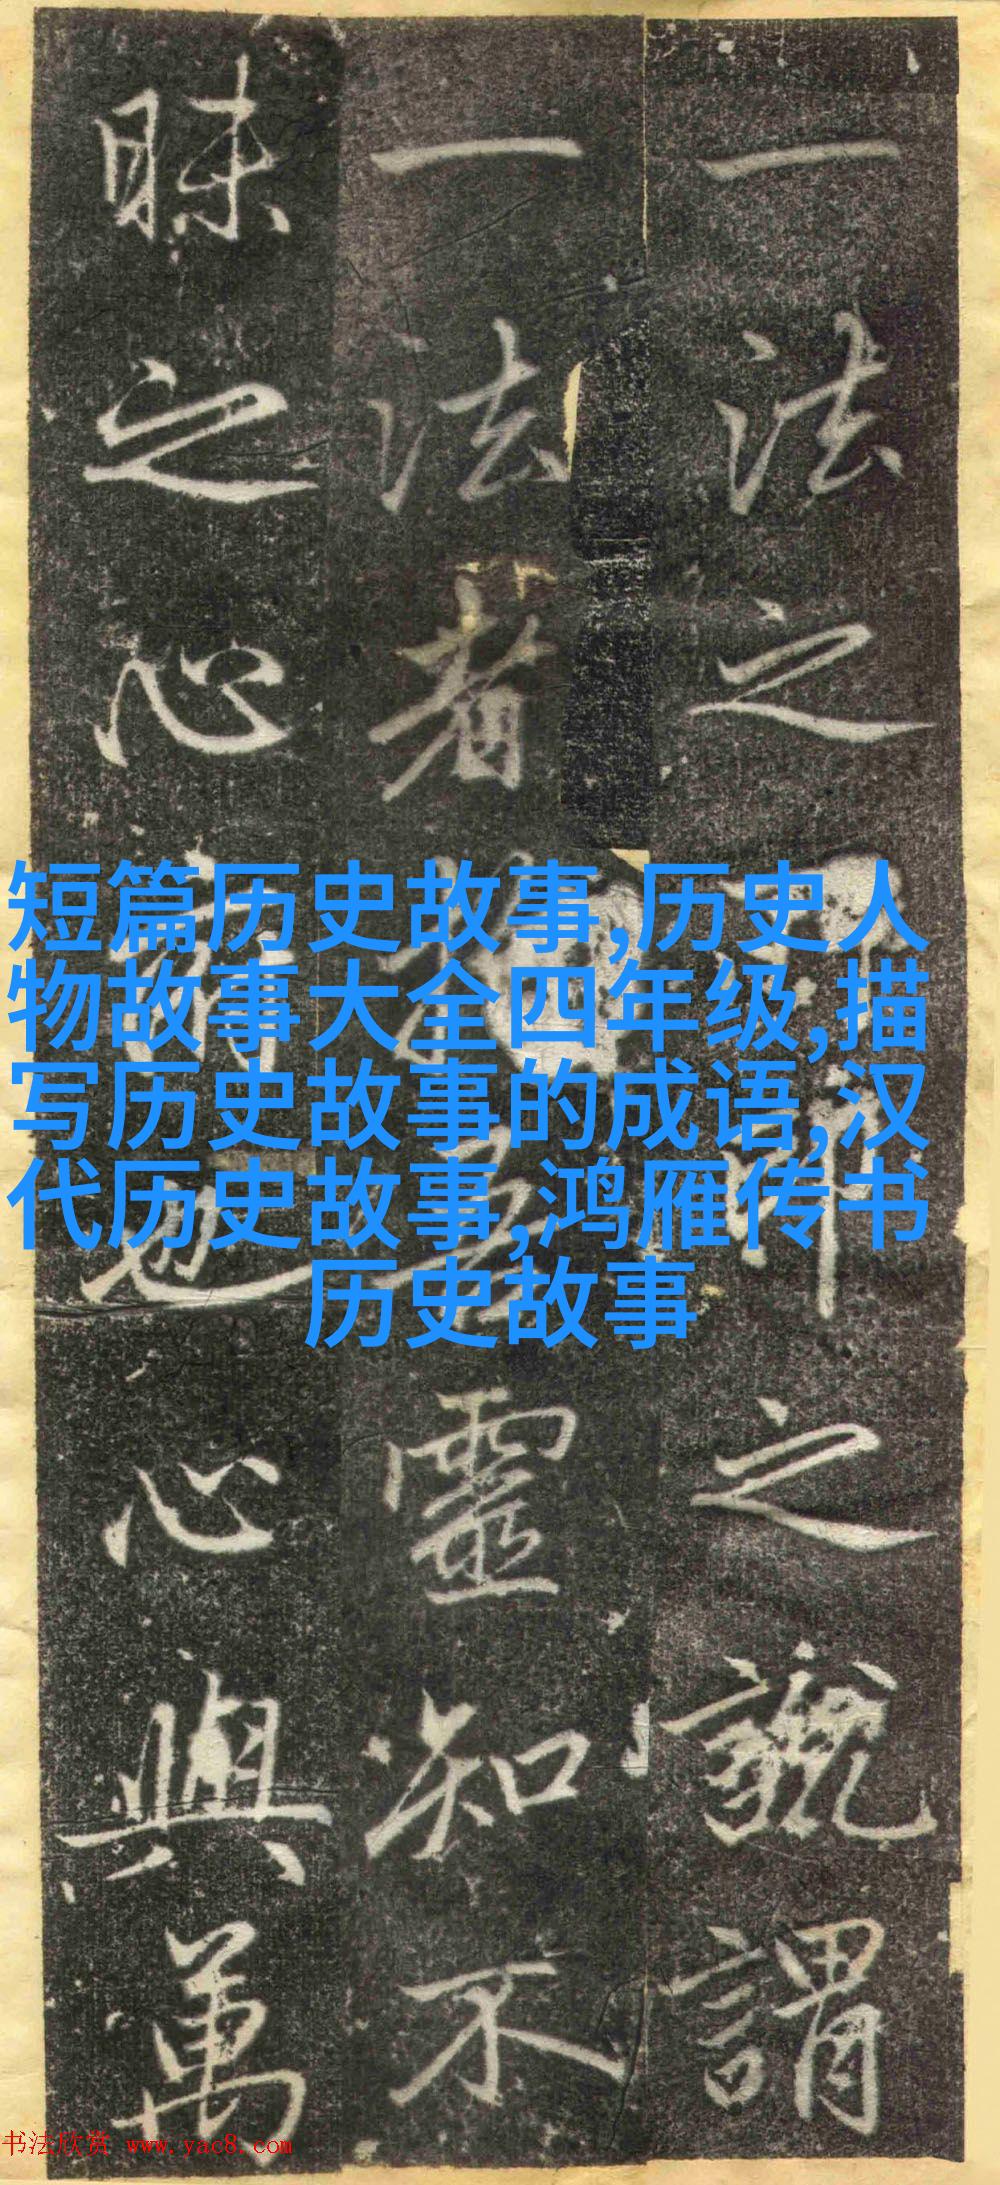 一法之之謂
一法者靈知不
昧之心也心與萬
短篇历史故事,历史人
物故事大全四年级,描
写历史故事的成语,汉
代历史故事,鸿雁传书
历史故事
书法欣赏 www.yac8.com